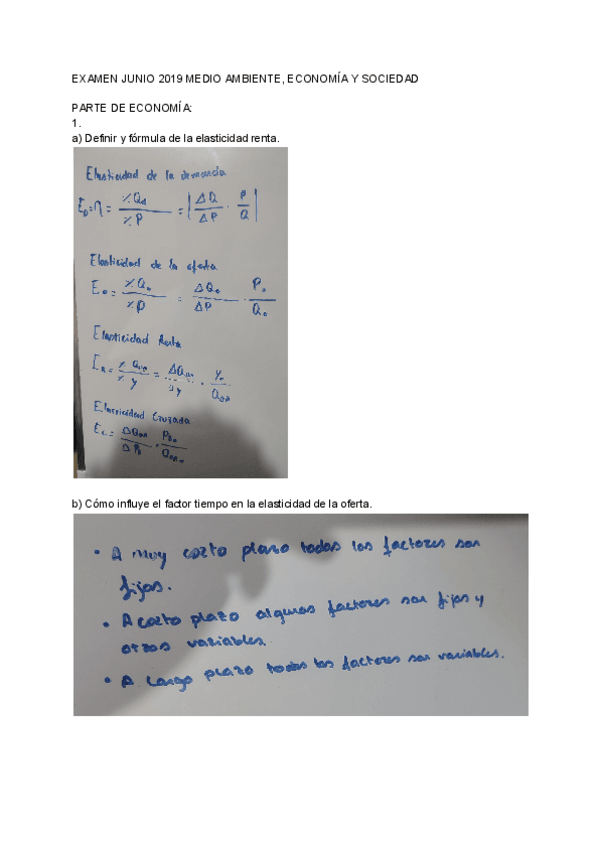 EXAMEN JUNIO 2019 MEDIO AMBIENTE, ECONOMÍA Y SOCIEDAD
PARTE DE ECONOMÍA:
1.
a) Definir y fórmula de la elasticidad renta.
Elasticidad de la demanda
E_D=η= %Q_d / %P = |ΔQ/ΔP · P/Q|
Elasticidad de la oferta
E_o= %Q_o / %P = ΔQ_o/ΔP · P_o/Q_o
Elasticidad Renta
= ΔQ · Y_o
Elasticidad Cruzada
E_c=
b) Cómo influye el factor tiempo en la elasticidad de la oferta.
• A muy corto plazo todos los factores son
fijos.
• A corto plazo algunos factores son fijos y
otros variables.
• A largo plazo todos los factores son variables.